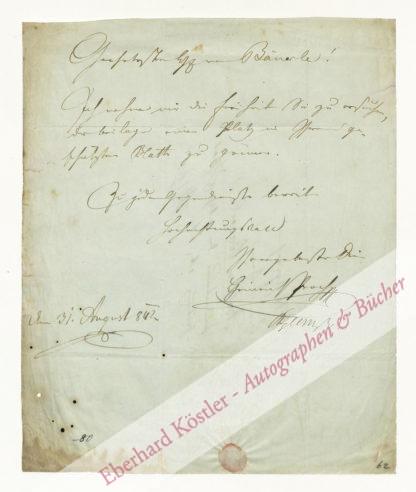 Geehrtester Herr von Bäuerle!
Ich nehme mir die Freiheit Sie zu ersuchen,
der Beilage einen Platz in Ihrem ge-
schätzten Blatte zu gönnen.
Zu jedem Gegendienste bereit
Hochachtungsvoll
Ihr ergebenster
Heinrich Proch
den 31. August 842
80
62
Eberhard Köstler - Autographen & Bücher